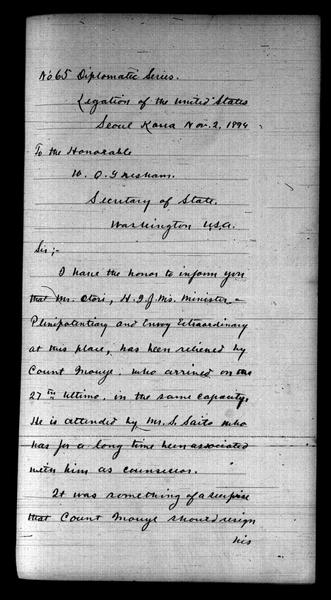 No 65 Diplomatic Series.
Legation of the United States
Seoul Korea Nov. 2, 1894
To the Honorable
W. Q. Gresham.
Secretary of State.
Washington U.S.A.
Sir;-
I have the honor to inform you
that Mr. Otori, H. I. J. M's. Minister-
Plenipotentiary and Envoy Extraordinary
at this place, has been relieved by
Count Inouye. who arrived on the
27th Ultimo. in the same capacity.
He is attended by Mr. S. Saito who
has for a long time been associated
with him as counsellor.
It was something of a surprise
that Count Inouye should resign
his